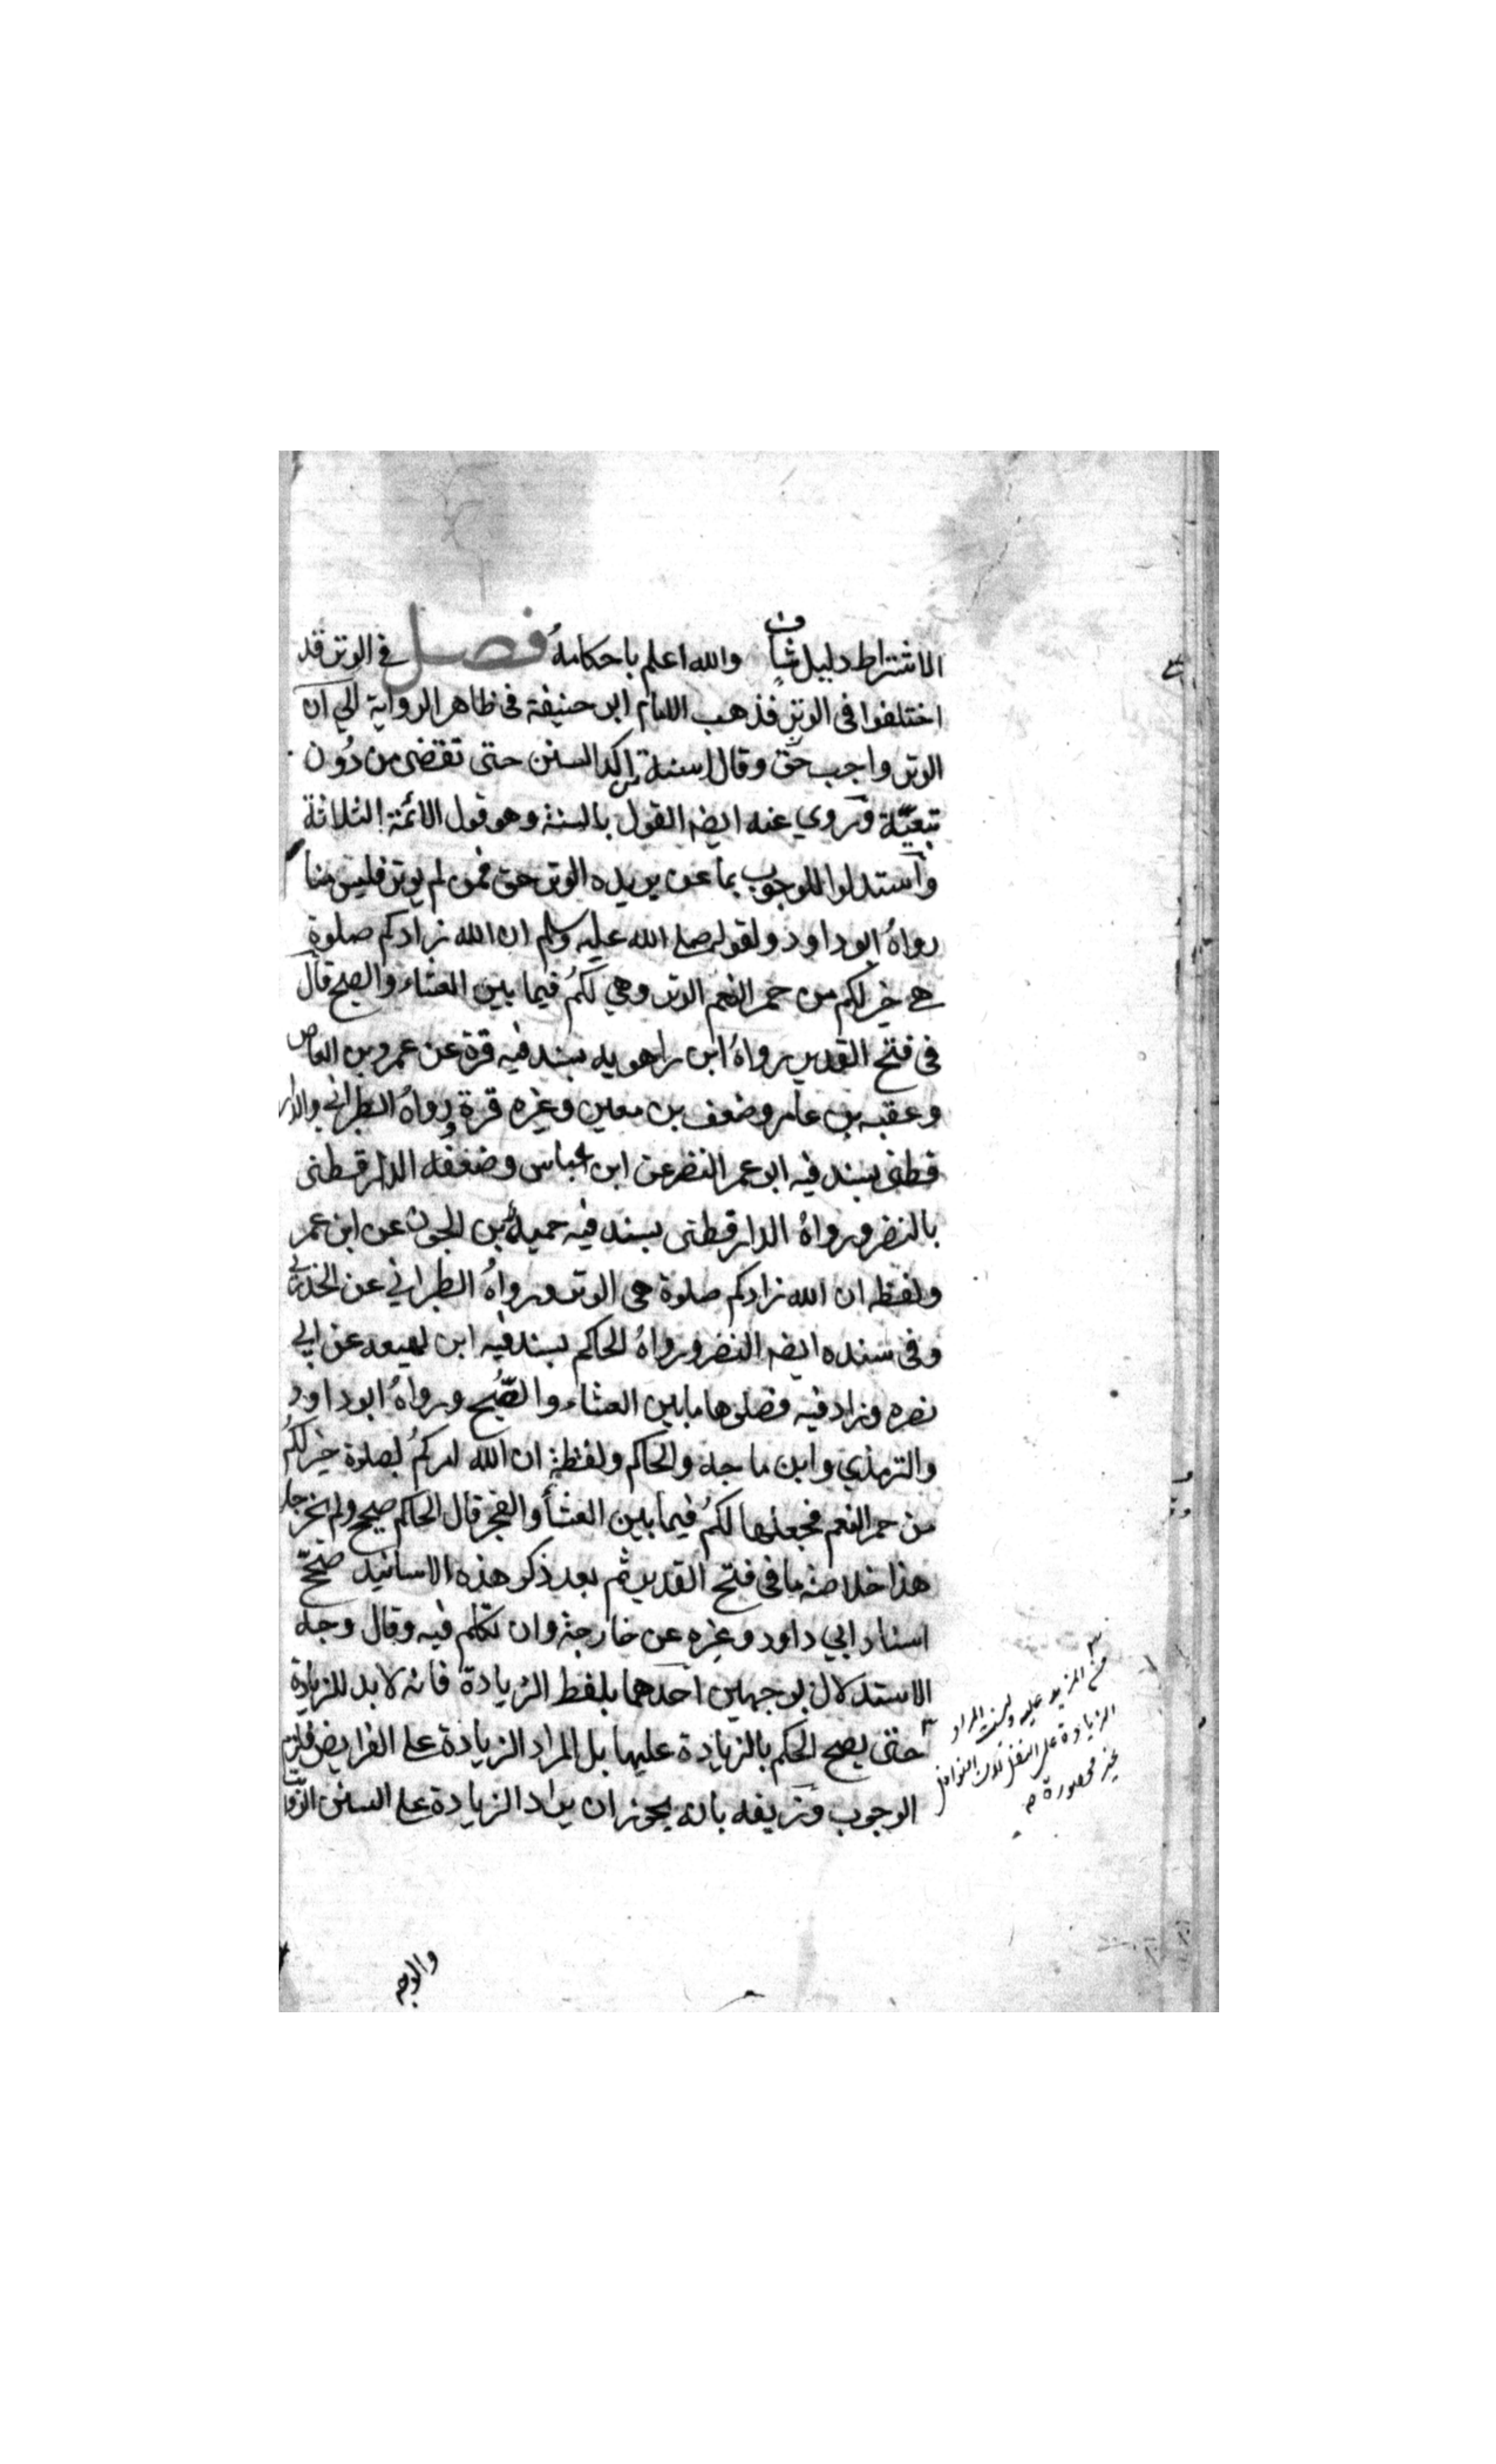 الاشتراط دليل شاف والله اعلم باحكامهُ فصل في الوتر قد
اختلفوا فى الوتر فذهب الامام ابو حنيفة فى ظاهر الرواية الي ان
الوتر واجب حق وقالا سنة اكد السنن حتى تقضى من دُون
تبعيّة وروي عنه ايضه القول بالسنة وهو قول الأئمة الثلاثة
وأستدلوا للوجوب بما عن بريده الوتر حق فمن لم يوتر فليس منا
رواهُ ابو داود ولقوله صلى الله عليه وسلم ان الله زادكم صلوة
هي خير لكم من حمر النعم الوتر وهي لكمُ فيما بين العشاء والصبح قال
فى فتح القدير رواهُ ابن راهويه بسند فيه قرة عن عمرو بن العاص
وعقبه بن عامر وضعف بن معين وغيره قرة ورواهُ الطبراني والدار
قطنى بسند فيه ابو عمر النضر عن ابن عباس وضعفُه الدارقطنى
بالنضر ورواهُ الدارقطنى بسند فيه حميد بن الجون عن ابن عمر
ولفظه ان الله زادكم صلوة هى الوتر ورواهُ الطبراني عن الخدري
وفى سنده ايضه النضر ورواهُ الحاكم بسند فيه ابن لهيعه عن ابي
نصره وزاد فيه فصلوها ما بين العشاء والصُّبح ورواهُ ابو داود
والترمذي وابن ماجه والحاكم ولفظه ان الله امركمُ بصلوة خير لكمُ
من حمر النعم فجعلها لكمُ فيما بين العشأ والفجر قال الحاكم صحيح ولم يخرجاه
هذا خلاصة ما فى فتح القدير ثم بعد ذكر هذه الاسانيد صحّح
اسناد ابي داود وغيره عن خارجة وان تكلم فيه وقال وجه
الاستدلال بوجهين احدهما بلفظ الزيادة فانه لا بد للزيادة
حتى يصح الحكم بالزيادة عليها بل المراد الزيادة على الفرايض فلزم
الوجوب وتزيفه بانه يجوز ان يراد الزيادة على السنن الرواتب
من المزيد عليه وليست المراد
الزيادة على النفل لان النوافل
غير محصورة صح
والوجه